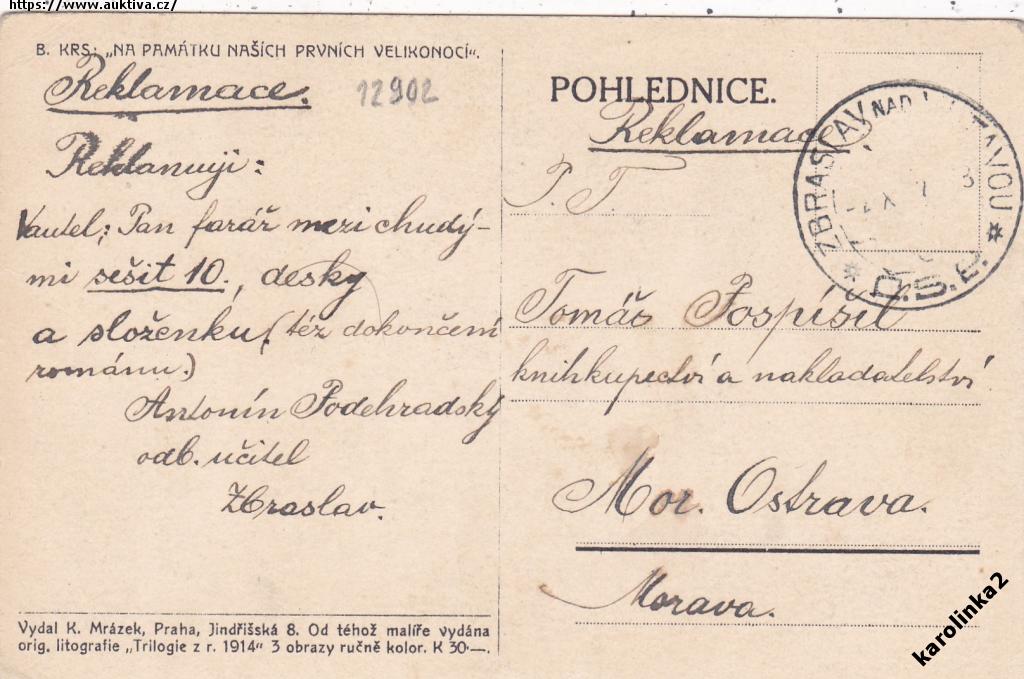 https://www.auktiva.cz/
B. KRS: „NA PAMÁTKU NAŠÍCH PRVNÍCH VELIKONOCÍ“.
Reklamace.
12902
Reklamuji:
Vautel: Pan farář mezi chudý-
mi sešit 10., desky
a složenku (též dokončení
románu.)
Antonín Podehradský
odb. učitel
Zbraslav.
Vydal K. Mrázek, Praha, Jindřišská 8. Od téhož malíře vydána
orig. litografie „Trilogie z r. 1914“ 3 obrazy ručně kolor. K 30·—.
POHLEDNICE.
Reklamace
P. T.
Tomáš Pospíšil
knihkupectví a nakladatelství
Mor. Ostrava.
Morava.
ZBRASLAV NAD VLTAVOU
Č.S.P.
karolinka2